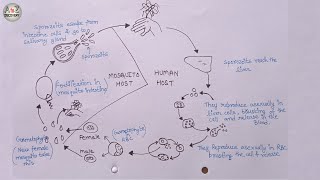 A2Z
Sporozoite escape from
intestine cells & go to
salivary gland
Sporozoite
MOSQUITO
HOST
HUMAN
HOST
Sporozoite reach the
liver
Fertilization in
mosquito intestine
They Reproduce asexually in
liver cells, bursting
the cell and release in the
Blood.
Gametocytes
Female
Male
Gametocyte
RBC
New female
mosquito take
this
They Reproduce asexually in RBC,
bursting the cell & release